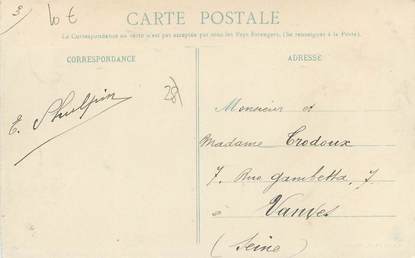 3
10 €
CARTE POSTALE
La Correspondance au verso n'est pas acceptée par tous les Pays Étrangers. (Se renseigner à la Poste).
CORRESPONDANCE
ADRESSE
28
E.
Monsieur et
Madame Crodoux
7. Rue Gambetta, 7
a Vanves
(Seine)